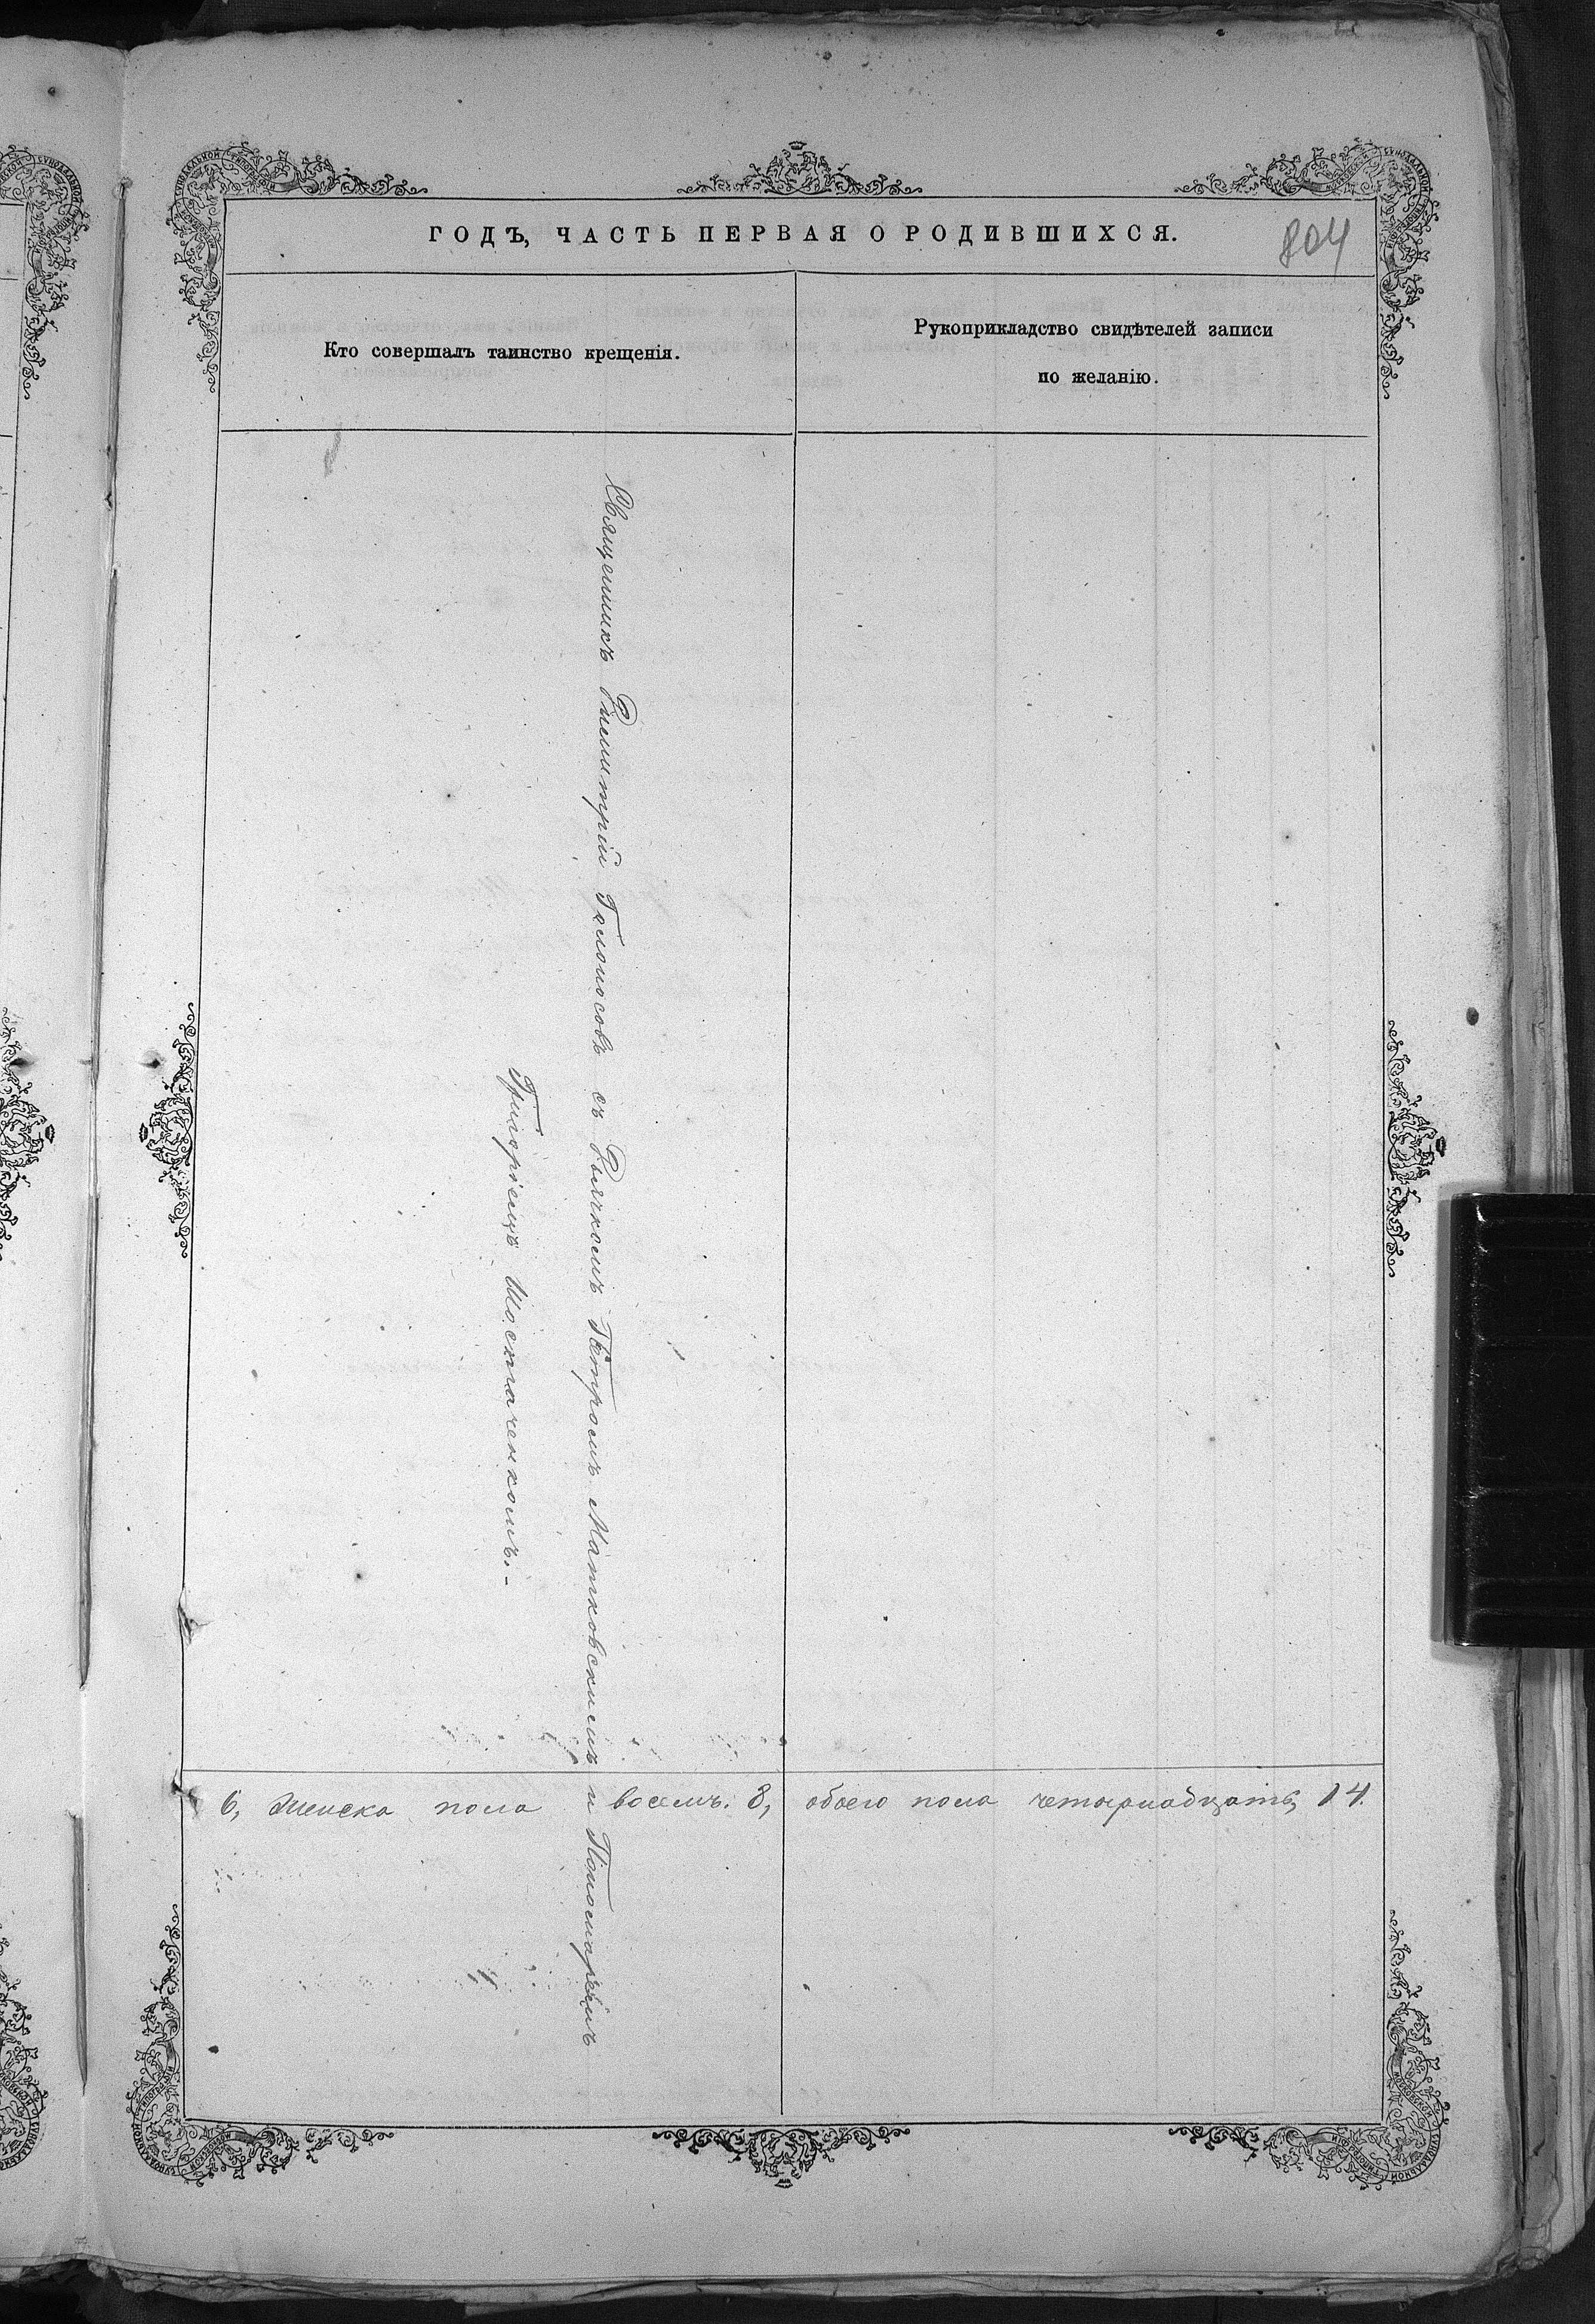 ГОДЪ, ЧАСТЬ ПЕРВАЯ О РОДИВШИХСЯ.
804
Кто совершалъ таинство крещенія.
Рукоприкладство свидѣтелей записи
по желанію.
Священникъ Димитрій Голоносовъ съ Дьячкомъ Петромъ Матковскимъ и Пономаремъ
Григоріемъ
6, женска пола восемъ. 8, обоего пола четырнадцать, 14.